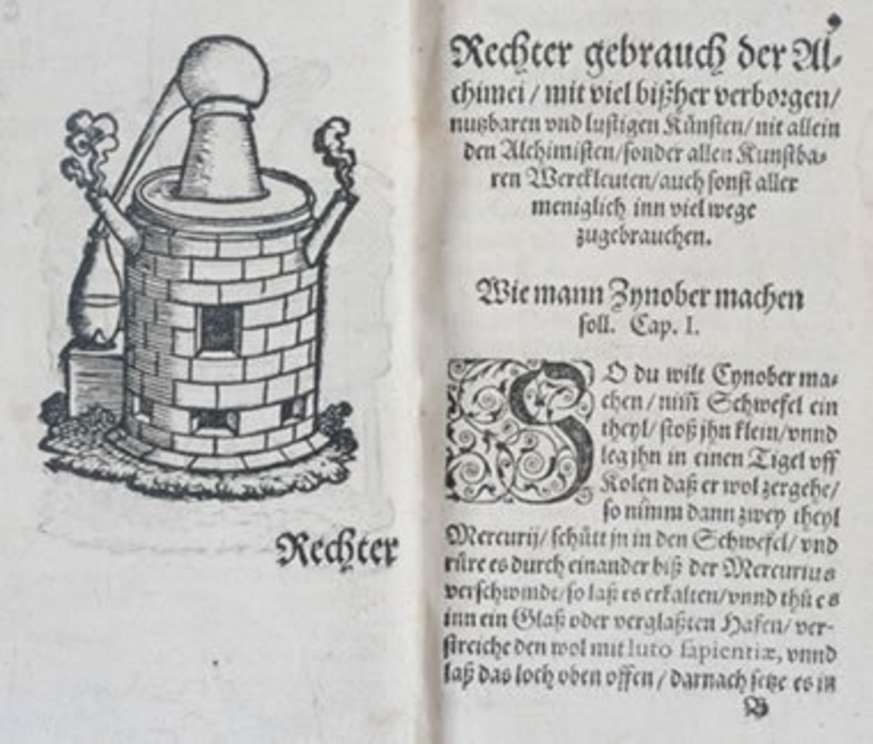 Rechter
Rechter gebrauch der Al⸗
chimei / mit viel bißher verborgen /
nutzbaren vnd lustigen Künsten / nit allein
den Alchimisten / sonder allen Kunstba⸗
ren Werckleuten / auch sonst aller
meniglich inn viel wege
zugebrauchen.
Wie mann Zynober machen
soll. Cap. I.
SO du wilt Cynober ma⸗
chen / nim̄ Schwefel ein
theyl / stoß jhn klein / vnnd
leg jhn in einen Tigel vff
Kolen daß er wol zergehe /
so nimm dann zwey theyl
Mercurij / schütt jn in den Schwefel / vnd
rüre es durch einander biß der Mercurius
verschwindt / so laß es erkalten / vnnd thů es
inn ein Glaß oder verglaßten Hafen / ver⸗
streiche den wol mit luto sapientiæ, vnnd
laß das loch oben offen / darnach setze es in
B